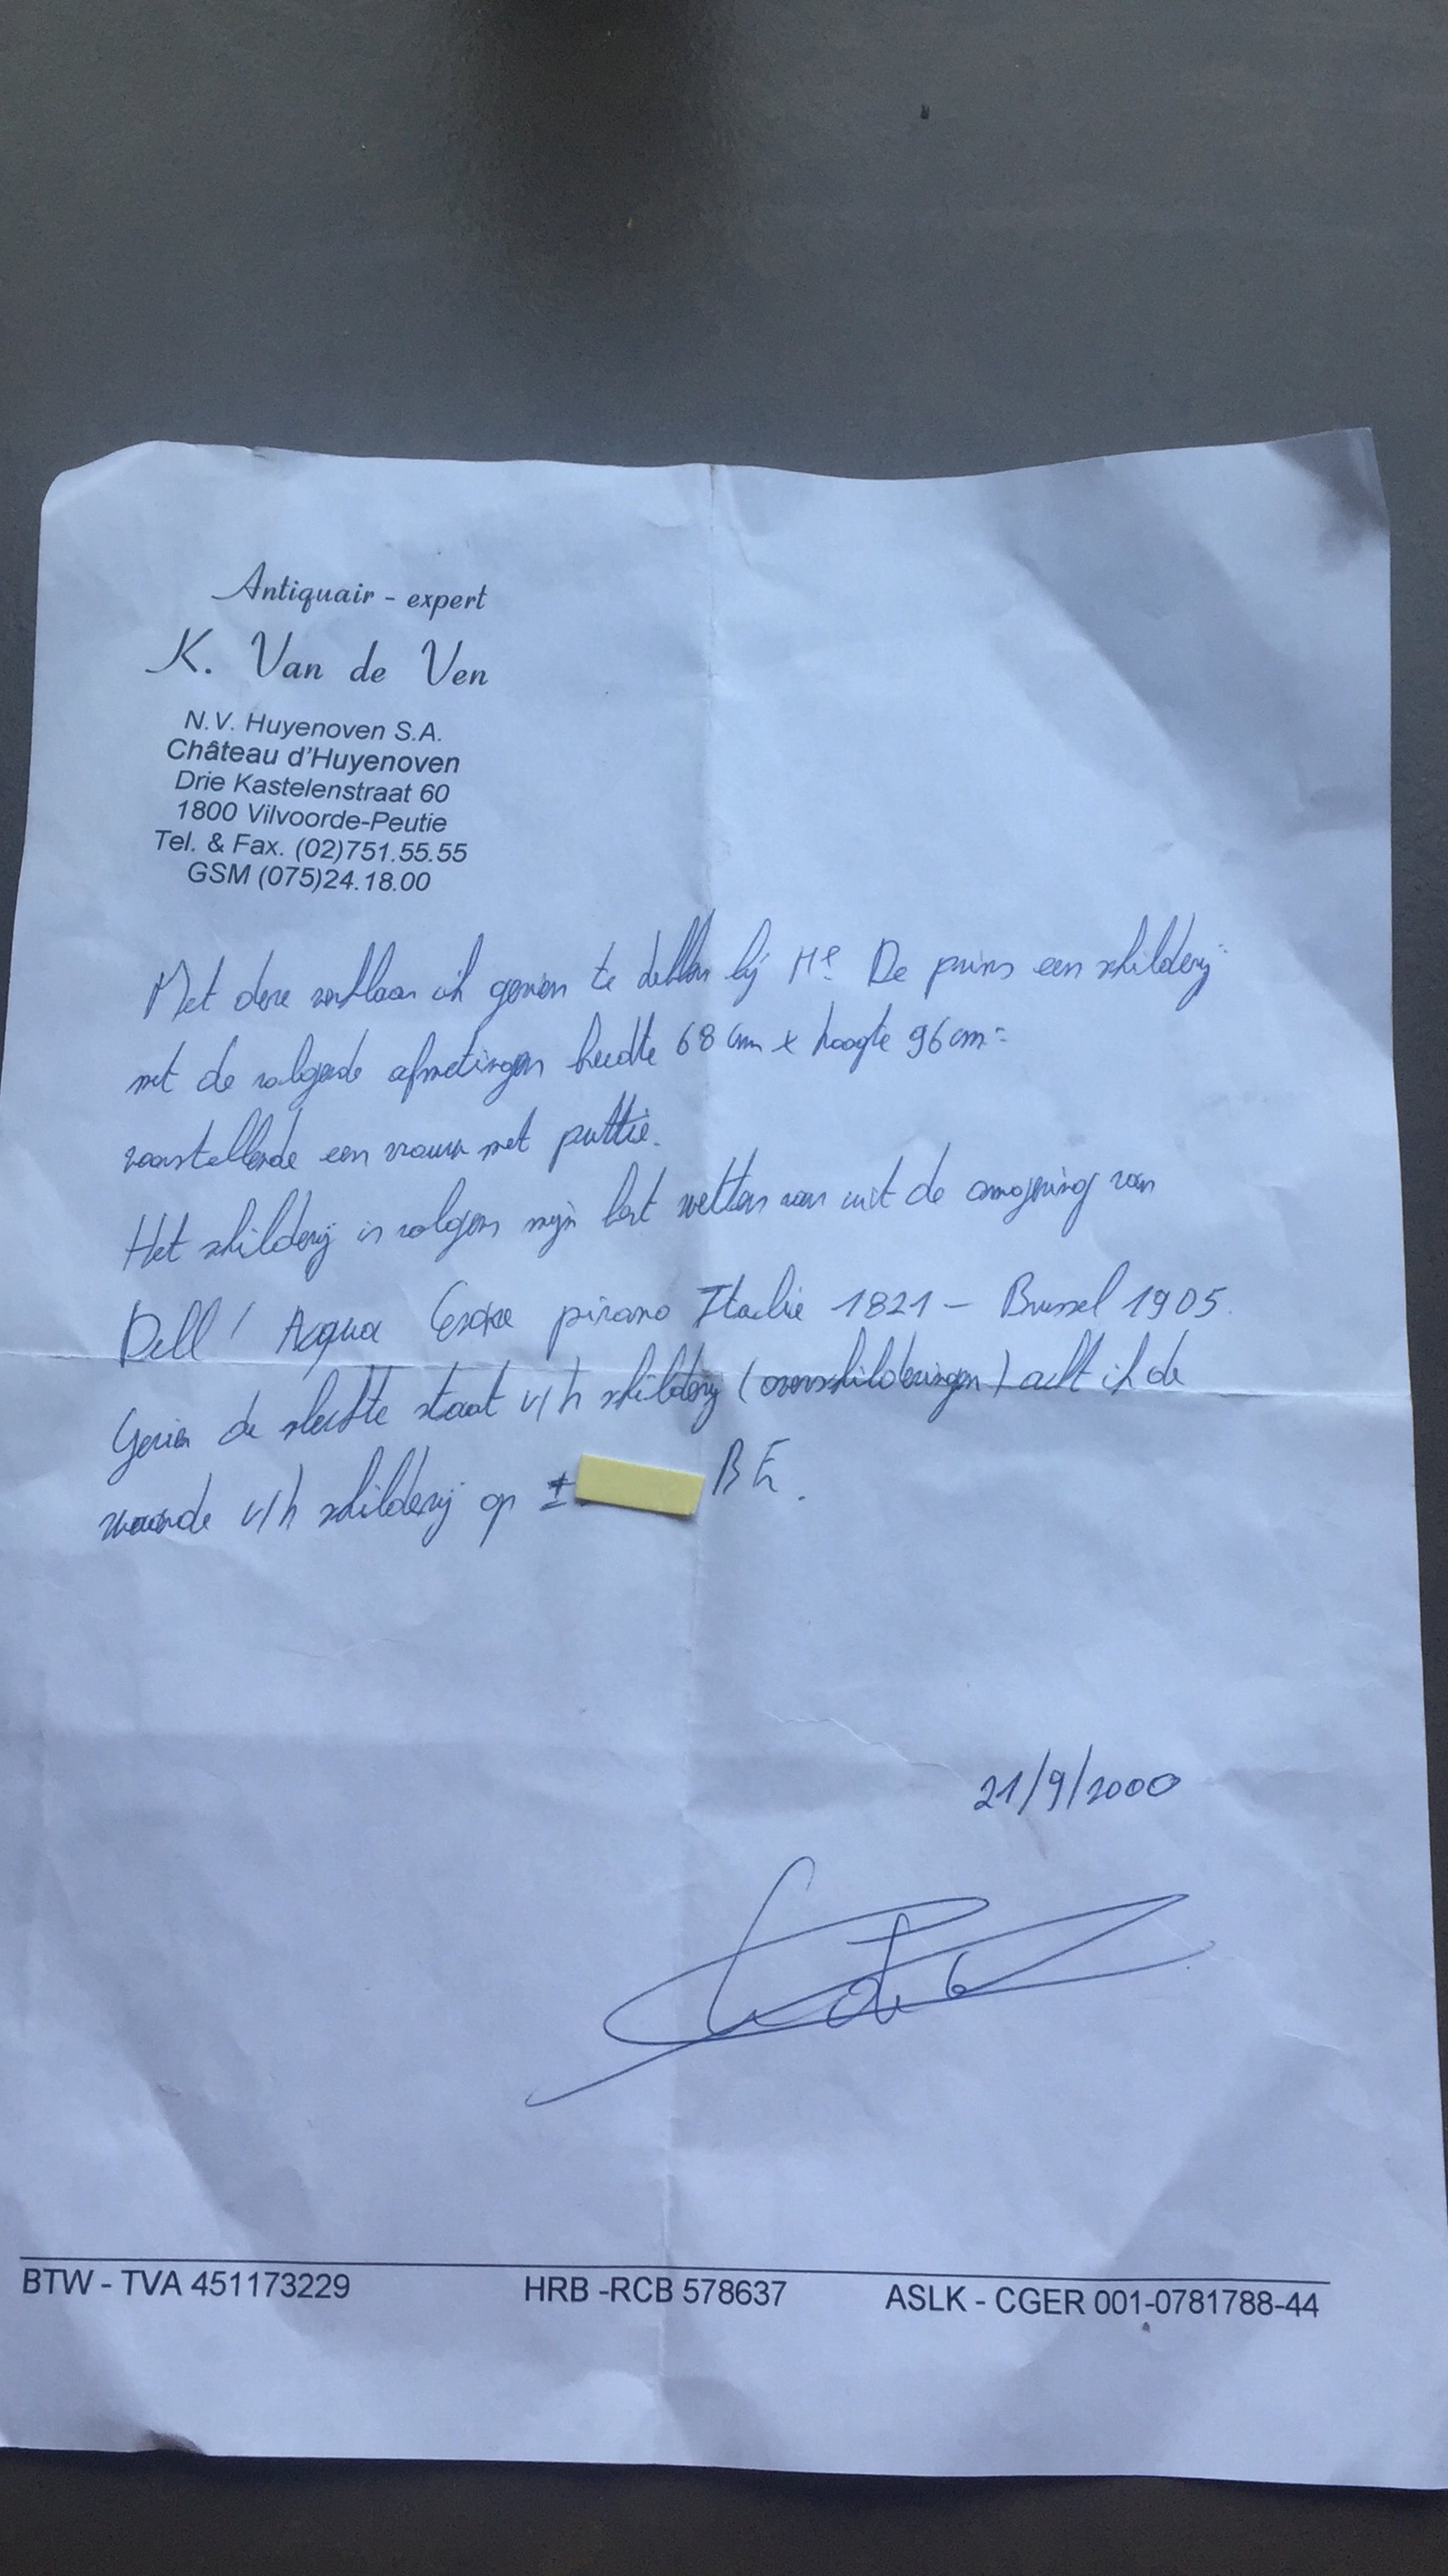 Antiquair - expert
K. Van de Ven
N.V. Huyenoven S.A.
Château d'Huyenoven
Drie Kastelenstraat 60
1800 Vilvoorde-Peutie
Tel. & Fax. (02)751.55.55
GSM (075)24.18.00
Met deze verklaar ik gezien te hebben bij Mr De prins een schilderij
met de volgende afmetingen breedte 68 cm x hoogte 96 cm
voorstellende een vrouw met puttie.
Het schilderij is volgens mijn best wetten van uit de omgeving van
Dell' Acqua Cesare pirano Italie 1821 - Brussel 1905.
Gezien de slechte staat v/h schilderij (overschilderingen) acht ik de
waarde v/h schilderij op ± BF.
21/9/2000
BTW - TVA 451173229 HRB -RCB 578637 ASLK - CGER 001-0781788-44